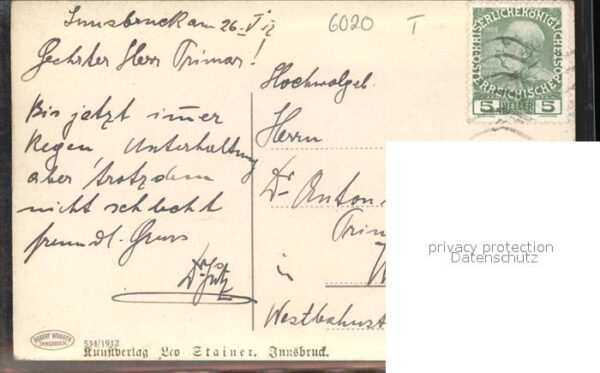 Innsbruck am 26. V 12
6020 T
Geehrter Herr Primar!
Bis jetzt immer
Regen Unterhaltung
aber trotzdem
nicht schlecht
freundl. Gruss
Dr
Hochwolgeb.
Herrn
Dr Anton
Prim
in
W
Westbahnst
KAISERLICHE KÖNIGLICHE ÖSTERREICHISCHE
1908
5 HELLER 5
privacy protection
Datenschutz
ROBERT WARGER
INNSBRUCK
534/1912
Kunstverlag Leo Stainer, Innsbruck.